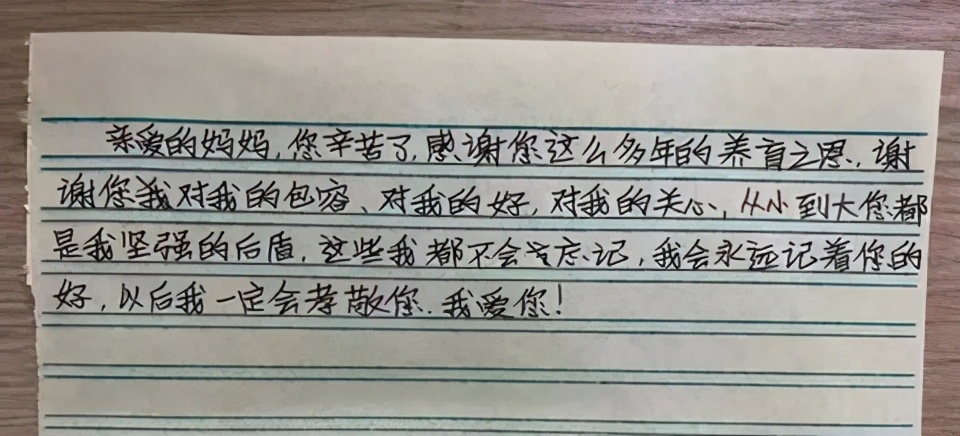 亲爱的妈妈,您辛苦了,感谢您这么多年的养育之恩,谢
谢您我对我的包容、对我的好,对我的关心,从小到大您都
是我坚强的后盾,这些我都不会忘记,我会永远记着您的
好,以后我一定会孝敬您.我爱您!